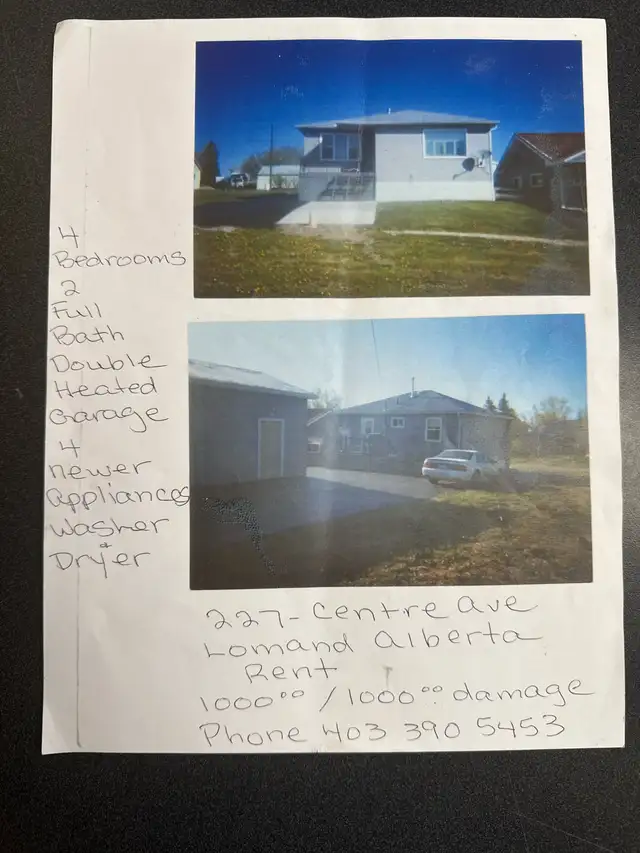 4
Bedrooms
2
Full
Bath
Double
Heated
Garage
4
newer
appliances
Washer
+
Dryer
227-Centre Ave
Lomand Alberta
Rent
1000⁰⁰ / 1000⁰⁰ damage
Phone 403 390 5453